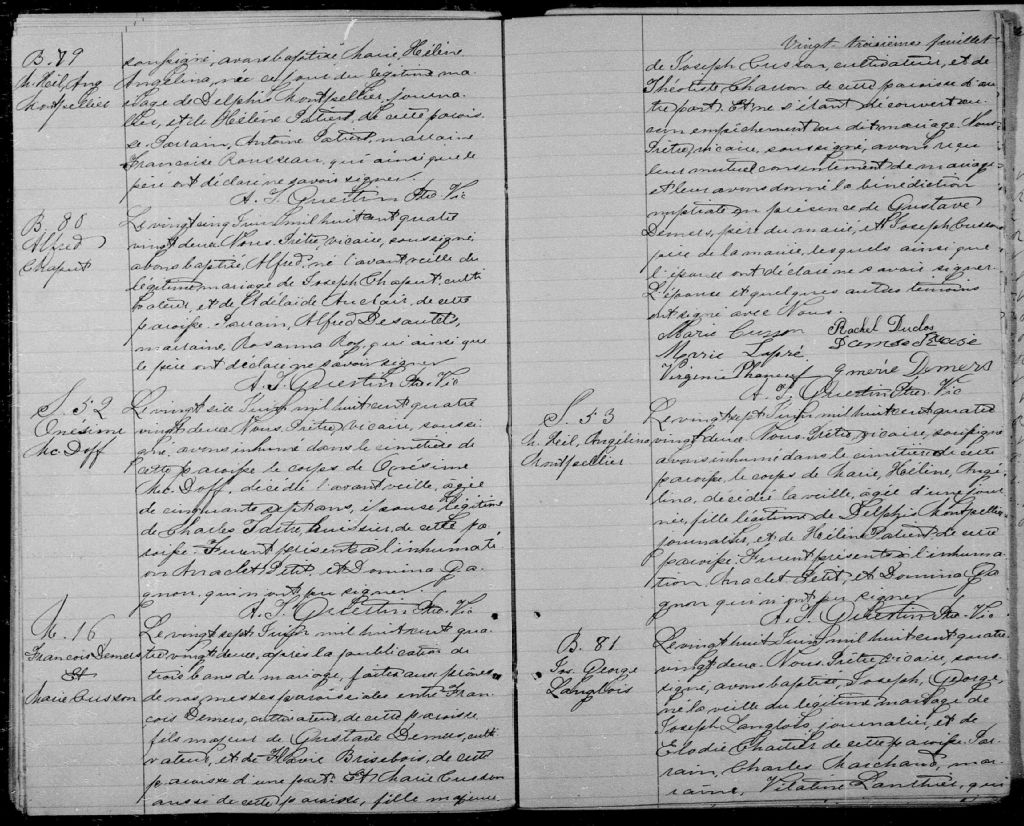 B. 79
M. Heil. Ang
Montpellier
soussigné, avons baptisé Marie, Hélène
Angélina, née ce jour du légitime ma-
riage de Delphis Montpellier, journa-
lier, et de Hélène Patient, de cette parois-
se. Parrain, Antoine Patient, marraine
Françoise Rousseau, qui ainsi que le
père ont déclaré ne savoir signer.
A. J. Quertin Ptre. Vic
B 80
Alfred
Chaput
Le vingt cinq Juin mil huit cent quatre
vingt deux. Nous, Prêtre vicaire, soussigné
avons baptisé, Alfred, né l'avant veille du
légitime mariage de Joseph Chaput, culti-
vateur, et de Adélaide Auclair, de cette
paroisse. Parrain, Alfred Desautels,
marraine, Rosanna Roy, qui ainsi que
le père ont déclaré ne savoir signer
A. J. Quertin Ptre. Vic
S. 52
Onesime
McDoff
Le vingt six Juin mil huit cent quatre
vingt deux Nous, Prêtre vicaire, soussi-
gné, avons inhumé dans le cimetière de
cette paroisse le corps de Onésime
Mc. Doff, décédée l'avant veille, agée
de cinquante sept ans, épouse légitime
de Charles Tartre, huissier de cette pa-
roisse. Furent présents à l'inhumati-
on Anaclet Petit, et Domina Ga-
gnon, qui n'ont pu signer.
A. J. Quertin Ptre. Vic
M. 16
Francois Demers
et
Marie Cusson
Le vingt sept Juin mil huit cent qua-
tre vingt deux, après la publication de
trois bans de mariage, faites aux prônes
de nos messes paroissiales entre Fran-
cois Demers, cultivateur, de cette paroisse
fils majeur de Gustave Demers, culti-
vateur, et de Flavie Brisebois, de cette
paroisse d'une part. Et Marie Cusson
aussi de cette paroisse, fille majeure
Vingt-troisième feuillet
de Joseph Cusson, cultivateur, et de
Théotiste Charron de cette paroisse d'au-
tre part. Et ne s'étant découvert au-
cun empêchement au dit mariage. Nous
Prêtre, vicaire, soussigné, avons reçu
leur mutuel consentement de mariage
et leur avons donné la bénédiction
nuptiale en présence de Gustave
Demers, père du marié, et Joseph Cusson
père de la mariée, lesquels ainsi que
l'époux ont déclaré ne savoir signer.
L'épouse et quelques autres temoins
ont signé avec Nous.
Marie Cusson Rachel Duclos
Marie Lapré
Virginie Phaneuf Demers
A. J. Quertin Ptre. Vic
S. 53
M. Heil. Angélina
Montpellier
Le vingt sept Juin mil huit cent quatre
vingt deux. Nous, Prêtre, vicaire, soussigné
avons inhumé dans le cimitière de cette
paroisse, le corps de Marie, Hélène, Angé-
lina, décédée la veille, agée d'une jour-
née, fille légitime de Delphis Montpellier
journalier, et de Hélène Patient de cette
paroisse. Furent présents à l'inhuma-
tion, Anaclet Petit, et Domina Ga-
gnon qui n'ont pu signer
A. J. Quertin Ptre. Vic
B. 81
Jos. George
Langlois
Le vingt huit Juin mil huit cent quatre
vingt deux. Nous Prêtre, vicaire, sous-
signé, avons baptisé, Joseph, George,
né la veille du légitime mariage de
Joseph Langlois, journalier, et de
Elodie Chartier de cette paroisse. Par-
rain, Charles Marchand, mar-
raine, Vitaline Lanthier, qui